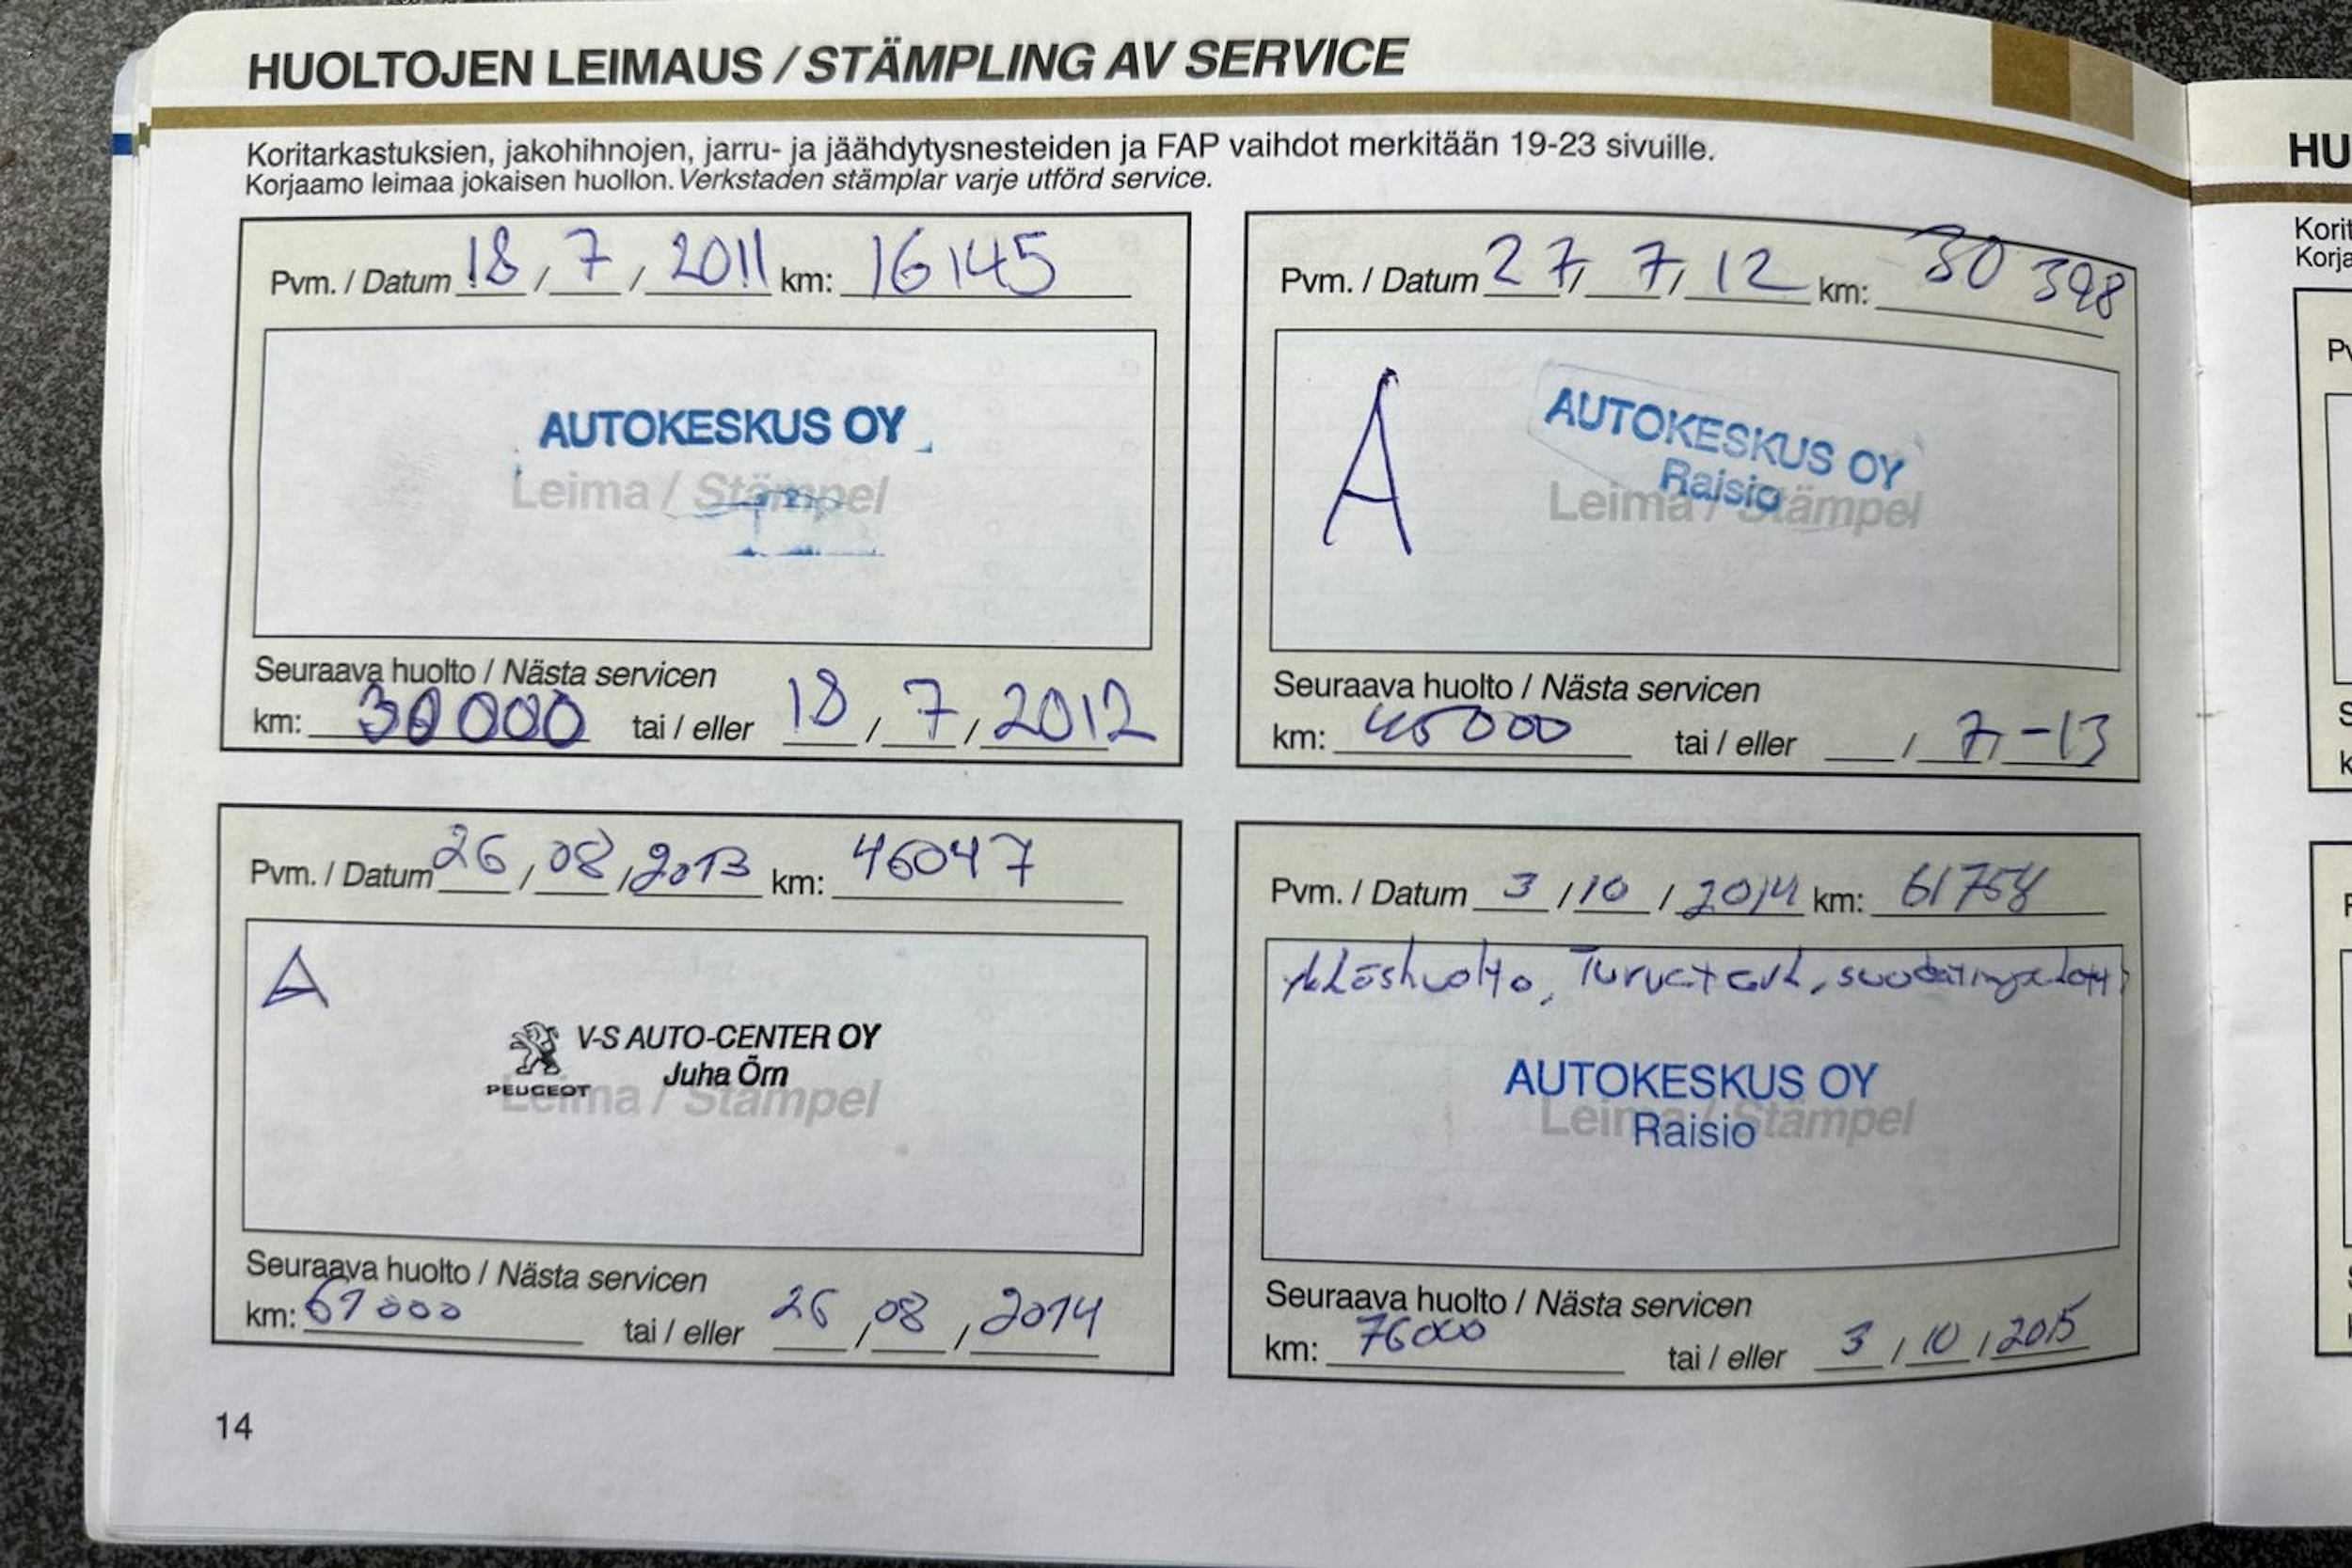 HUOLTOJEN LEIMAUS / STÄMPLING AV SERVICE
Koritarkastuksien, jakohihnojen, jarru- ja jäähdytysnesteiden ja FAP vaihdot merkitään 19-23 sivuille.
Korjaamo leimaa jokaisen huollon. Verkstaden stämplar varje utförd service.
Pvm. / Datum 18 / 7 / 2011 km: 16145
AUTOKESKUS OY
Leima / Stämpel
Seuraava huolto / Nästa servicen
km: 30000 tai / eller 18 / 7 / 2012
Pvm. / Datum 27 / 7 / 12 km: 30 398
A
AUTOKESKUS OY
Raisio
Leima / Stämpel
Seuraava huolto / Nästa servicen
km: 45000 tai / eller / 7 / -13
Pvm. / Datum 26 / 08 / 2013 km: 46047
A
V-S AUTO-CENTER OY
Juha Örn
PEUGEOT
Leima / Stämpel
Seuraava huolto / Nästa servicen
km: 61000 tai / eller 26 / 08 / 2014
Pvm. / Datum 3 / 10 / 2014 km: 61758
AUTOKESKUS OY
Leima / Stämpel
Raisio
Seuraava huolto / Nästa servicen
km: 76000 tai / eller 3 / 10 / 2015
14
HU
Korit
Korja